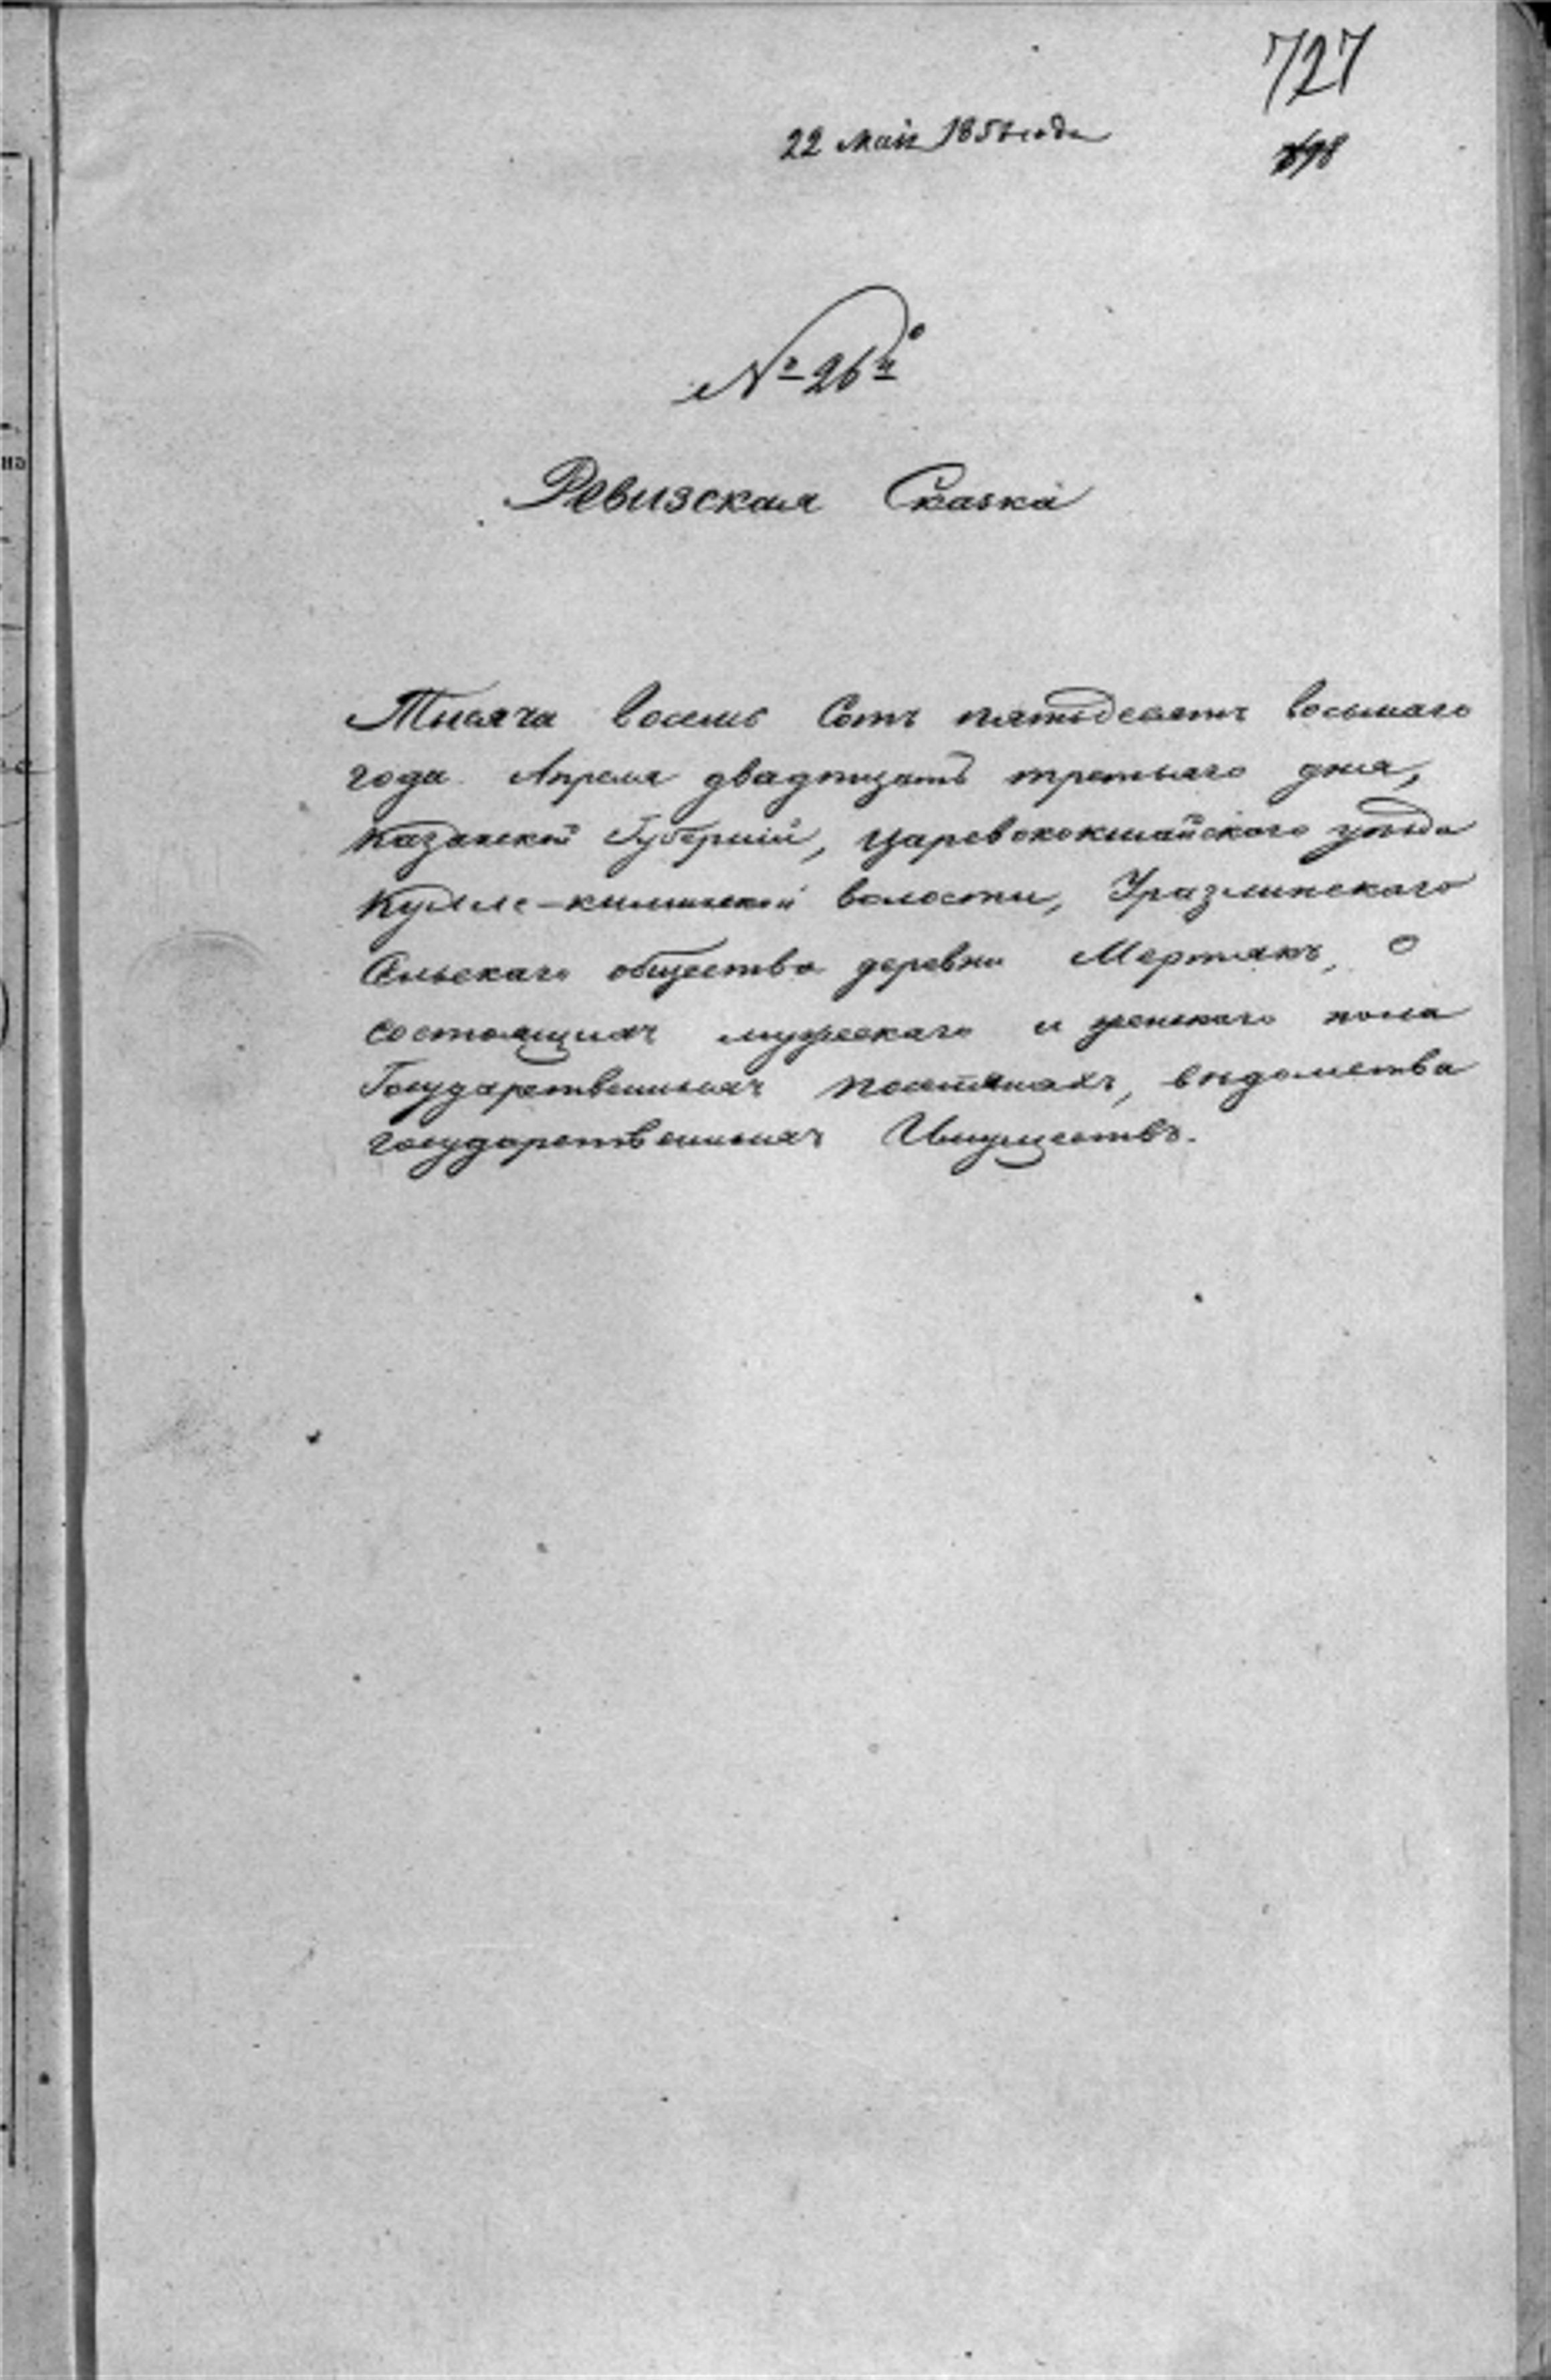 727
22 мая 1858 года
698
№ 26й
Ревизская Сказка
Тысяча восемь Сотъ пятьдесятъ восьмаго
года Апреля двадтцать третьяго дня,
Казанской Губерніи, Царевококшайскаго уѣзда
Кулле-киминской волости, Уразлинскаго
Сельскаго общества деревни Мертякъ, о
состоящихъ мужескаго и женскаго пола
Государственныхъ поселянахъ, вѣдомства
государственныхъ Имуществъ.